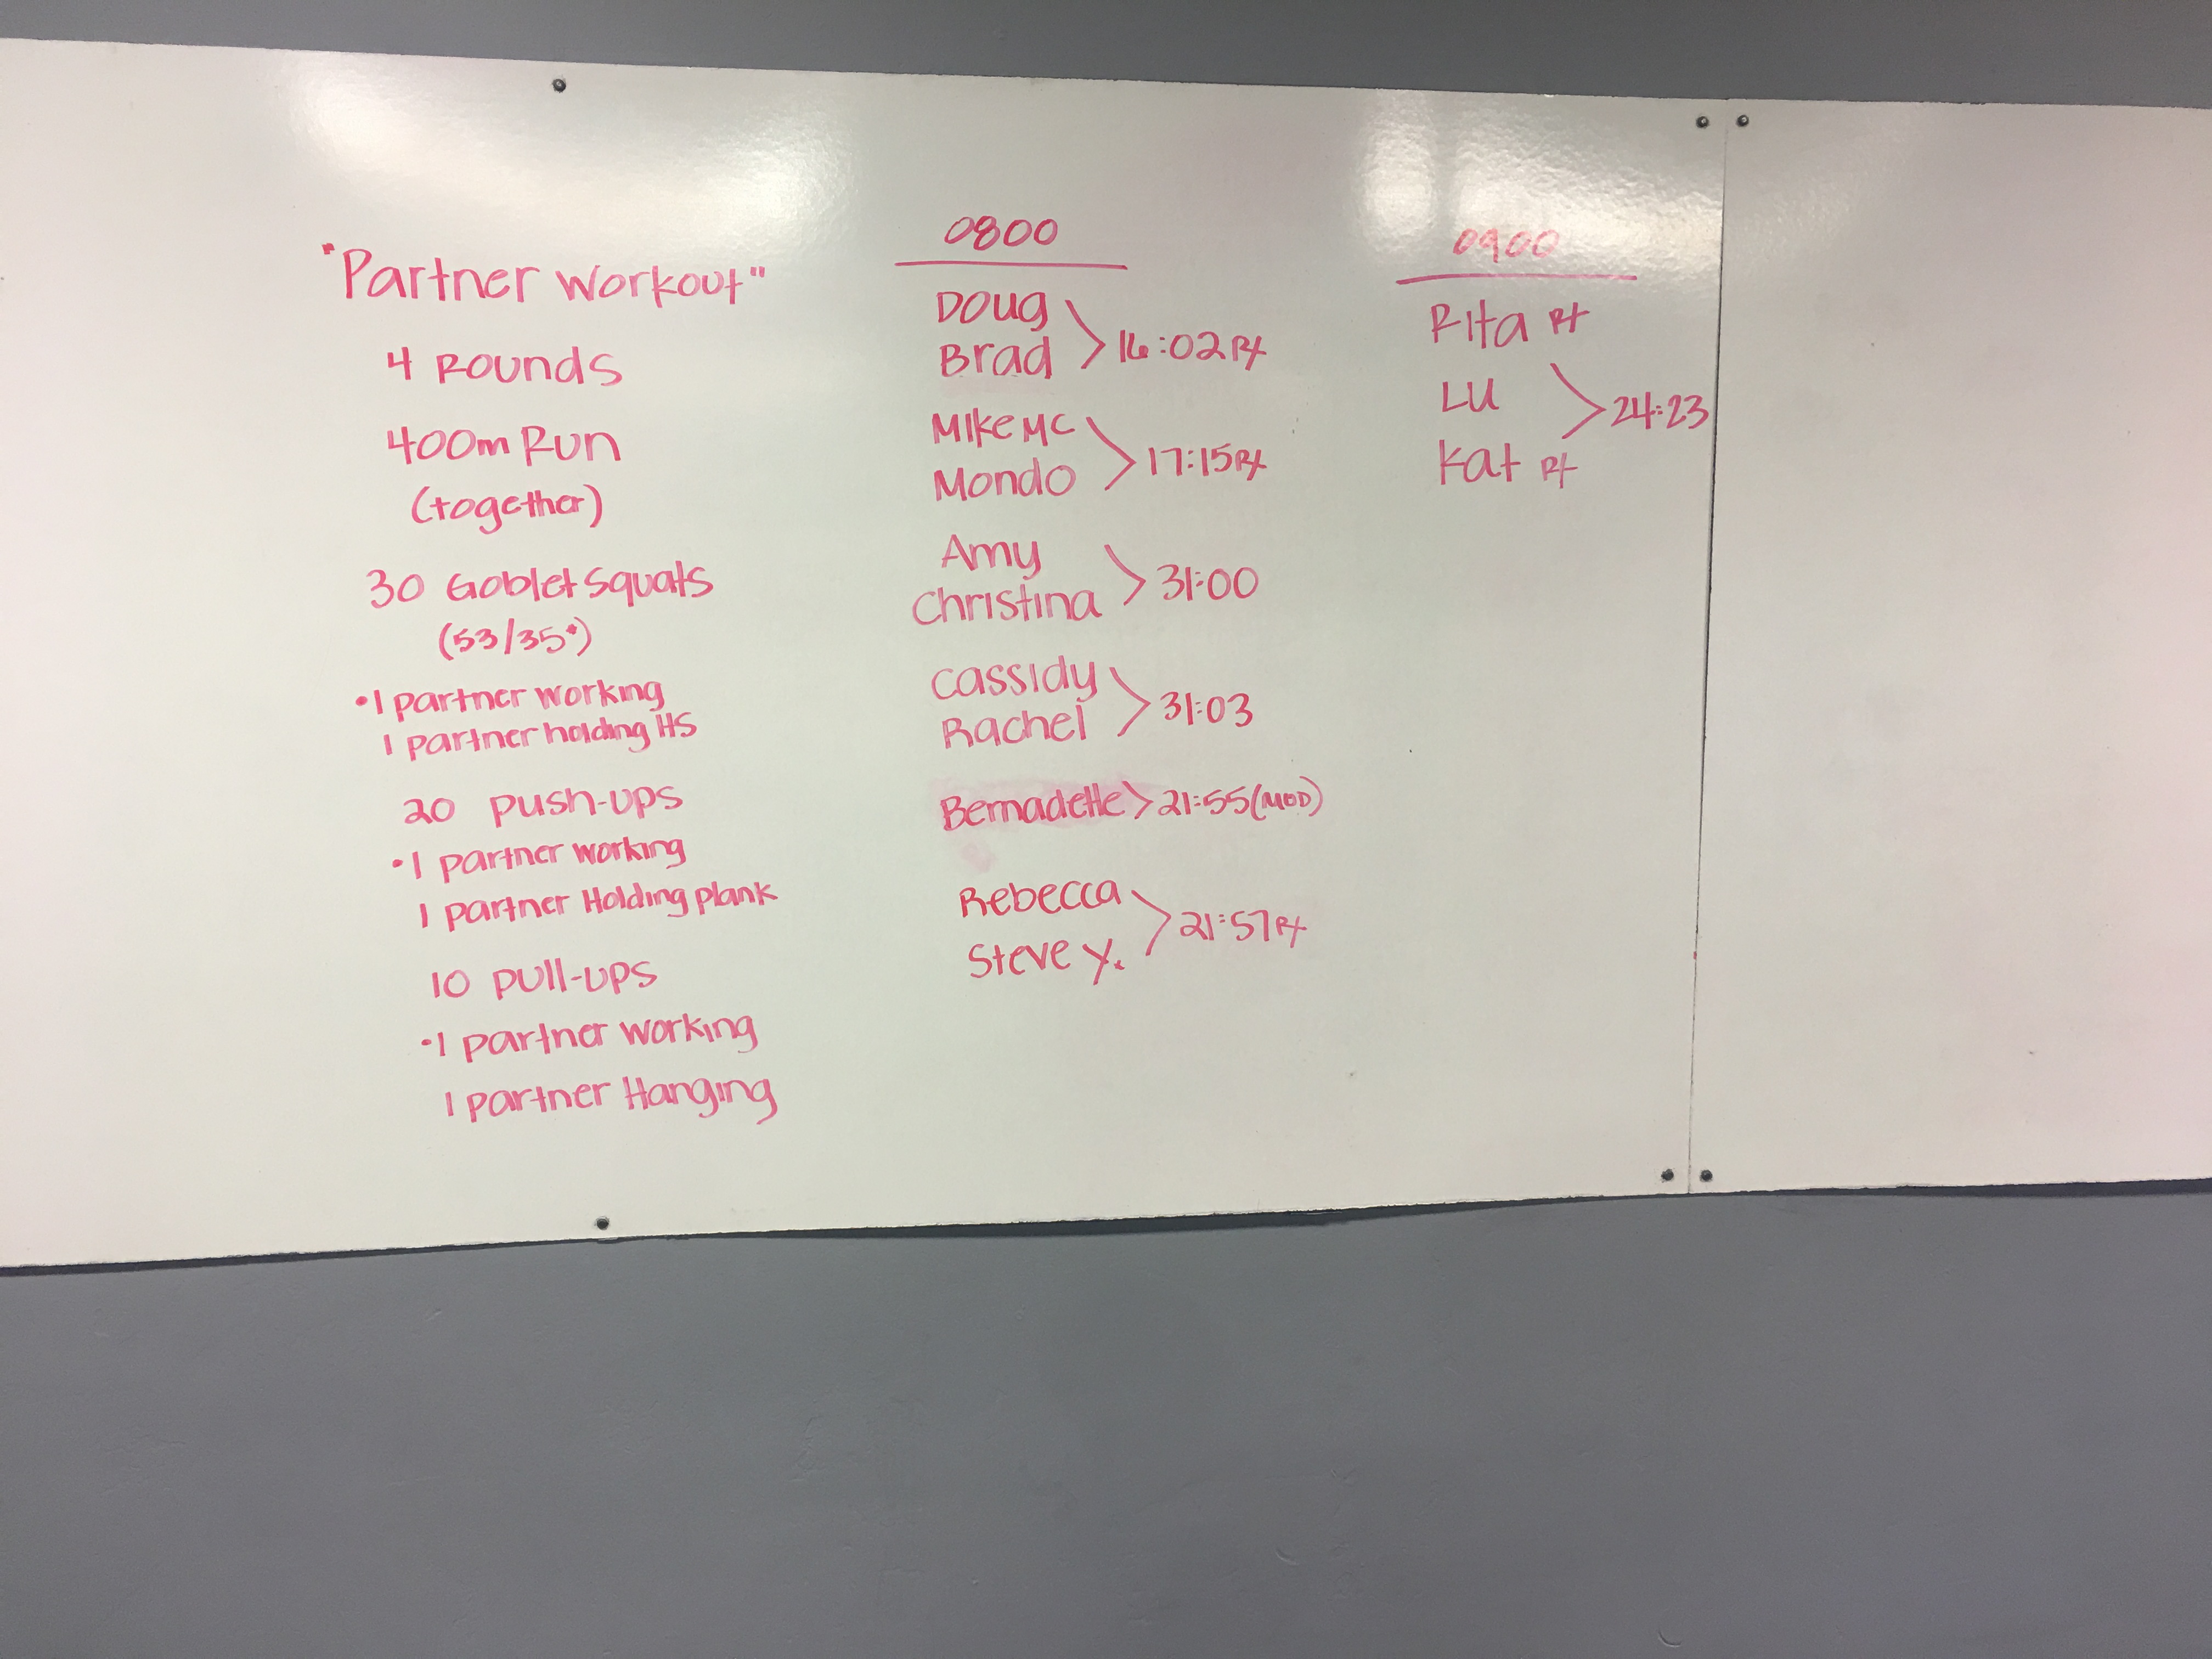 "Partner Workout"
4 Rounds
400m Run
(together)
30 Goblet Squats
(53/35#)
•1 partner working
1 partner holding HS
20 Push-ups
•1 partner working
1 partner Holding plank
10 Pull-ups
•1 partner working
1 partner Hanging
0800
Doug
Brad
16:02 Rx
Mike Mc
Mondo
17:15 Rx
Amy
Christina
31:00
Cassidy
Rachel
31:03
Bernadette > 21:55 (MOD)
Rebecca
Steve Y.
21:57 Rx
0900
Rita Rx
Lu
24:23
Kat Rx